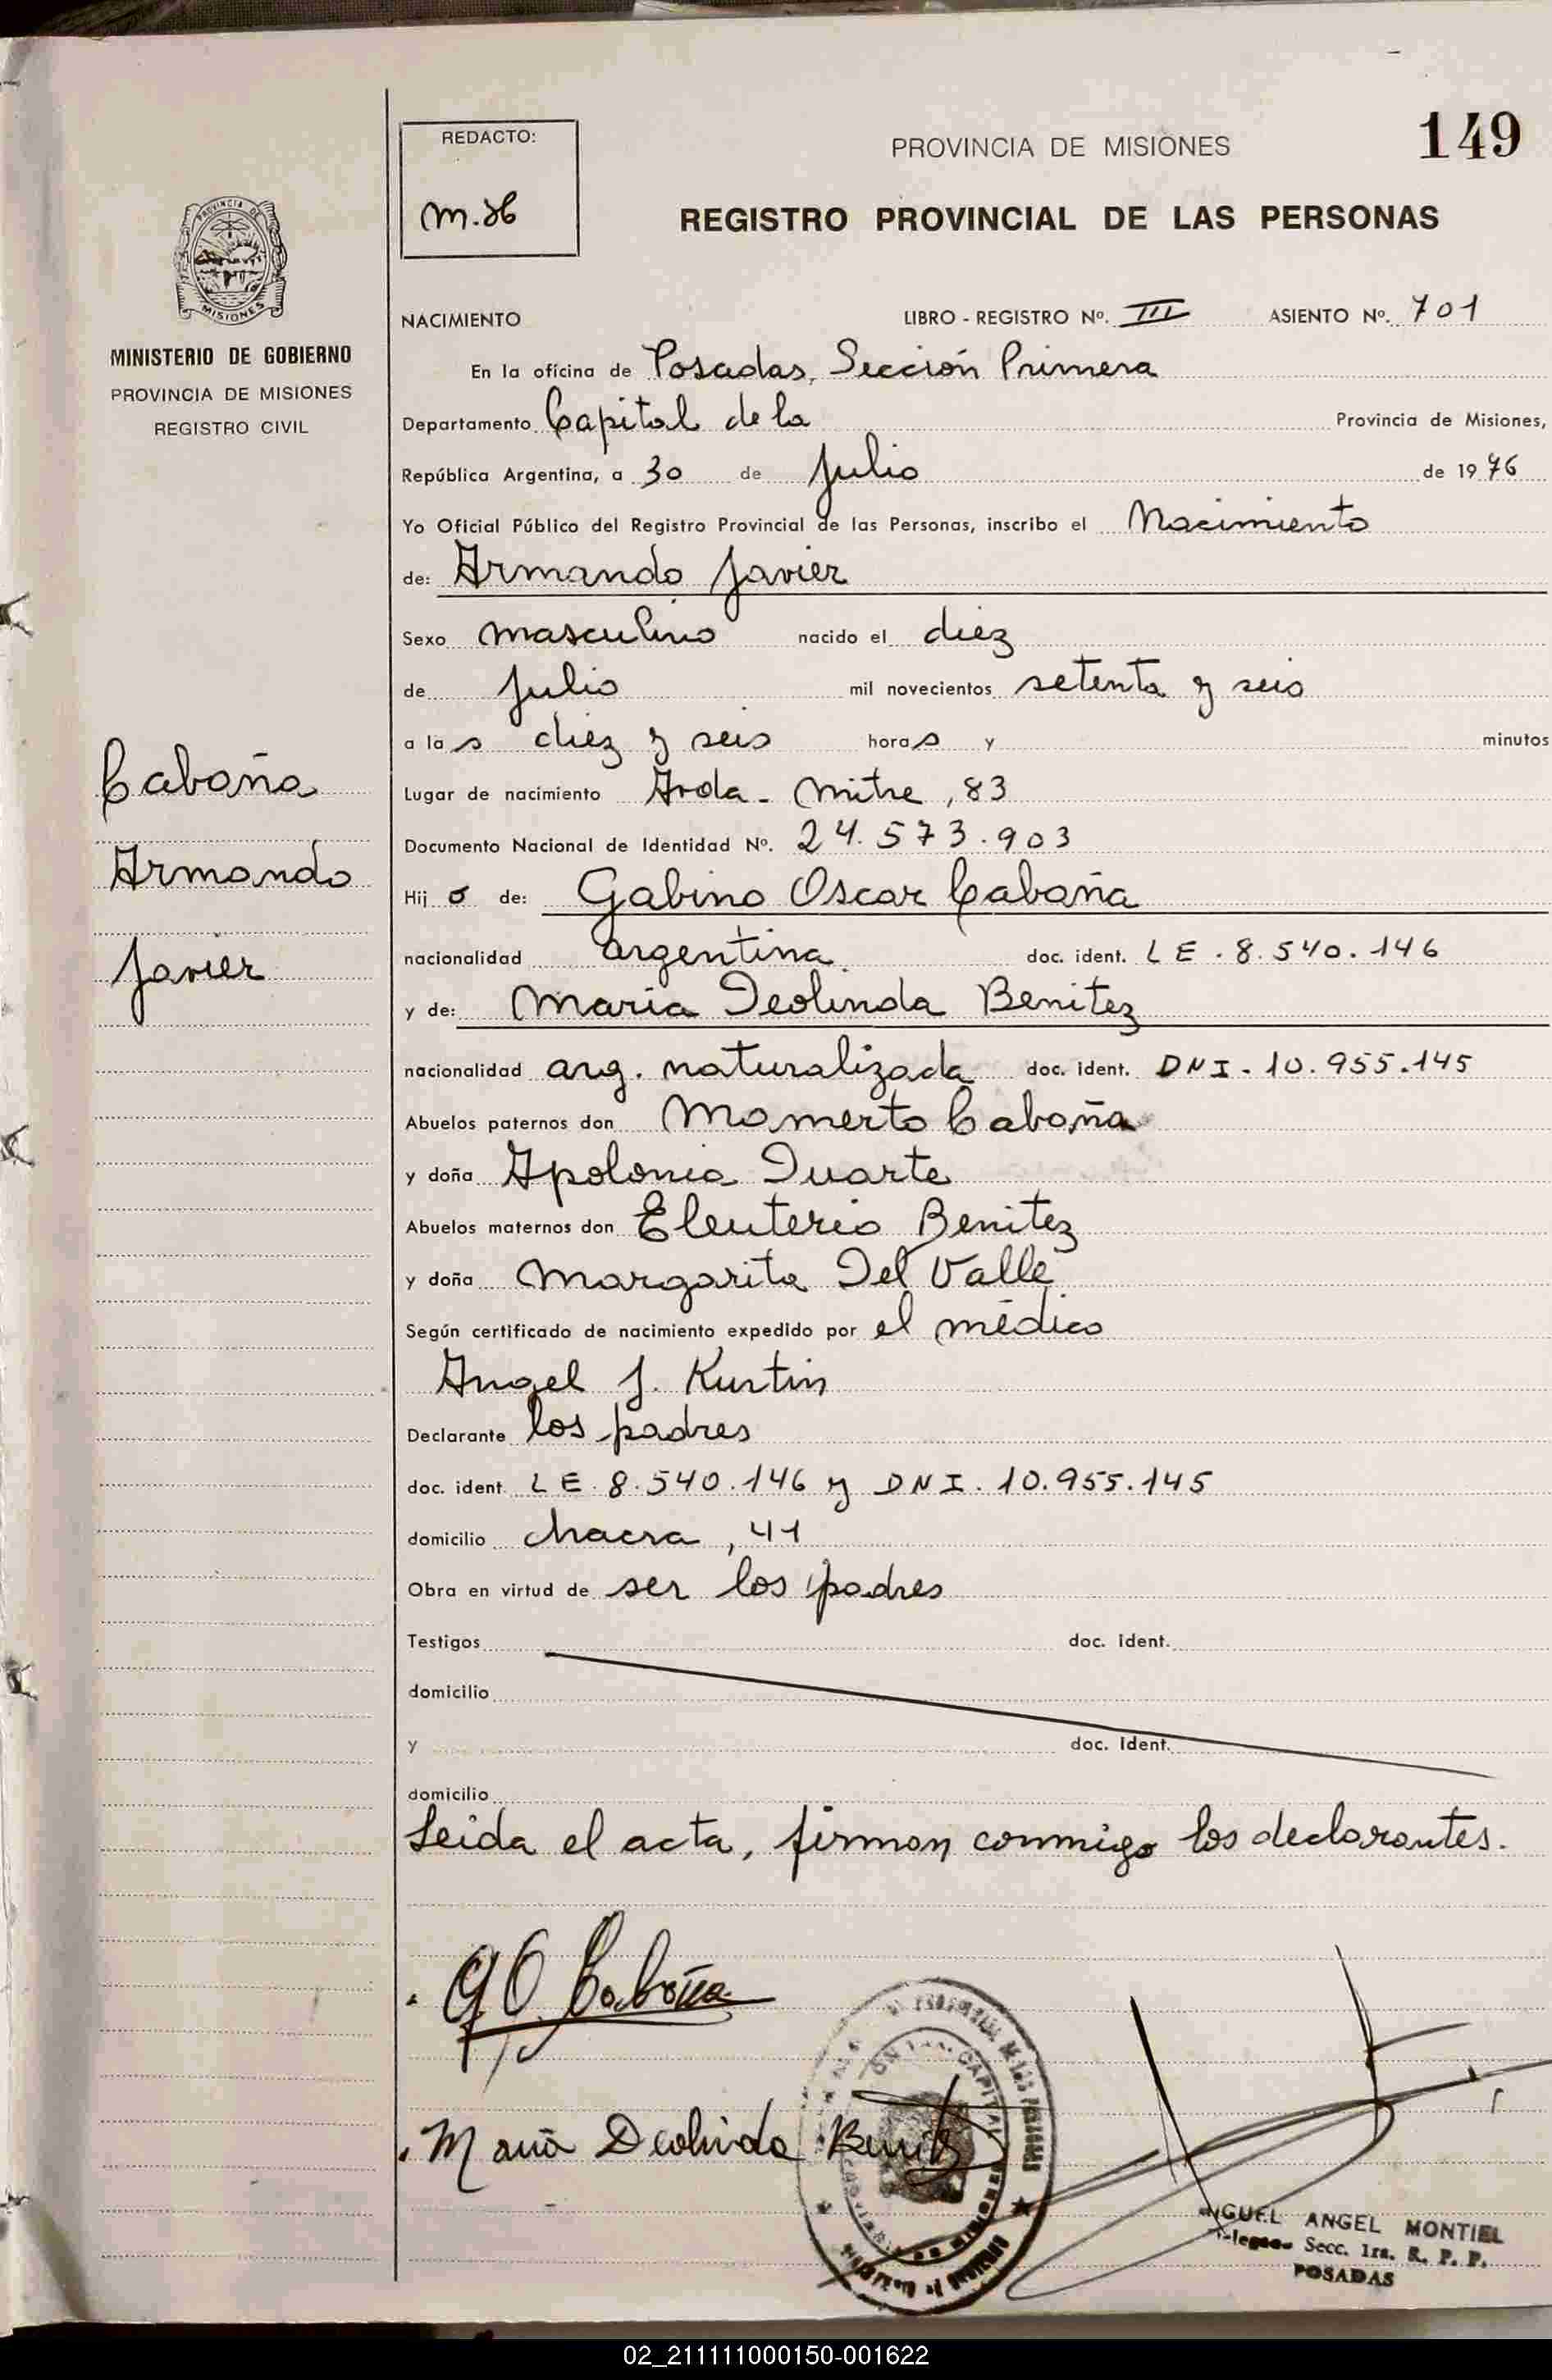 149
REDACTO:
m.H
PROVINCIA DE MISIONES
REGISTRO PROVINCIAL DE LAS PERSONAS
PROVINCIA DE
MISIONES
MINISTERIO DE GOBIERNO
PROVINCIA DE MISIONES
REGISTRO CIVIL
Cabaña
Armando
Javier
NACIMIENTO LIBRO - REGISTRO Nº. III ASIENTO Nº. 701
En la oficina de Posadas, Sección Primera
Departamento Capital de la Provincia de Misiones,
República Argentina, a 30 de Julio de 1976
Yo Oficial Público del Registro Provincial de las Personas, inscribo el Nacimiento
de: Armando Javier
Sexo masculino nacido el diez
de Julio mil novecientos setenta y seis
a las diez y seis horas y minutos
Lugar de nacimiento Avda. Mitre, 83
Documento Nacional de Identidad Nº. 24.573.903
Hijo de: Gabino Oscar Cabaña
nacionalidad argentina. doc. ident. LE. 8.540.146
y de: Maria Deolinda Benitez
nacionalidad arg. naturalizada doc. ident. DNI. 10.955.145
Abuelos paternos don Momerto Cabaña
y doña Apolonia Duarte
Abuelos maternos don Eleuterio Benitez
y doña Margarita Del Valle
Según certificado de nacimiento expedido por el médico
Angel J. Kurtin
Declarante los padres
doc. ident. LE. 8.540.146 y DNI. 10.955.145
domicilio chacra, 41
Obra en virtud de ser los padres
Testigos doc. ident.
domicilio
y doc. ident.
domicilio
Leida el acta, firman conmigo los declarantes.
G O Cabaña
Maria Deolinda Benitez
MIGUEL ANGEL MONTIEL
Secc. 1ra. R. P. P.
POSADAS
02_211111000150-001622